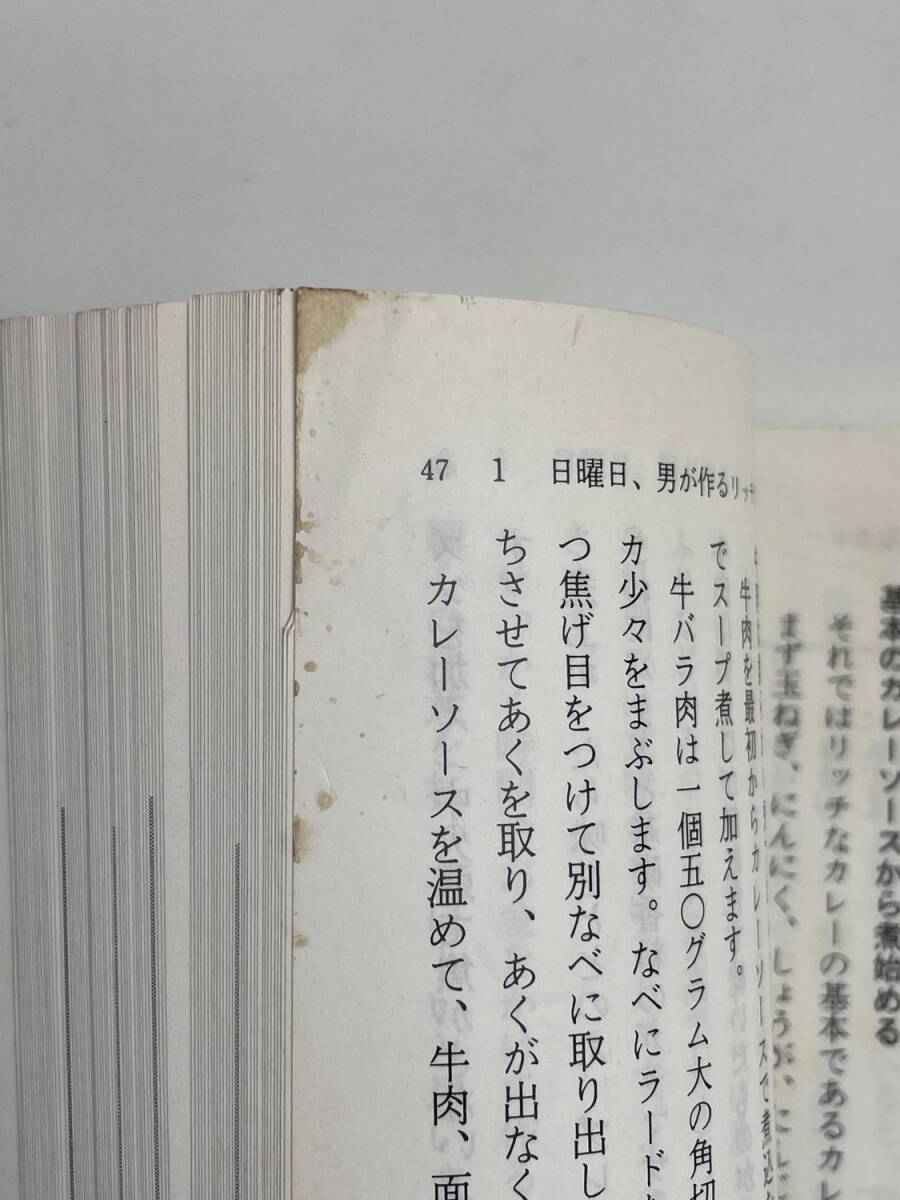 47　1　日曜日、男が作るリッ
基本のカレーソースから煮始める
それではリッチなカレーの基本であるカレ
まず玉ねぎ、にんにく、しょうが、にん
牛肉を最初からカレーソースで煮込
でスープ煮して加えます。
牛バラ肉は一個五〇グラム大の角切
カ少々をまぶします。なべにラード
つ焦げ目をつけて別なべに取り出し
ちさせてあくを取り、あくが出なく
カレーソースを温めて、牛肉、面